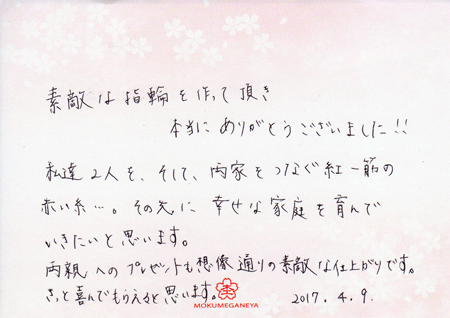 素敵な指輪を作って頂き
本当にありがとうございました!!
私達2人を、そして、両家をつなぐ紅一筋の
赤い糸…。その先に幸せな家庭を育んで
いきたいと思います。
両親へのプレゼントも想像通りの素敵な仕上がりです。
きっと喜んでもらえると思います。
MOKUMEGANEYA
2017.4.9.